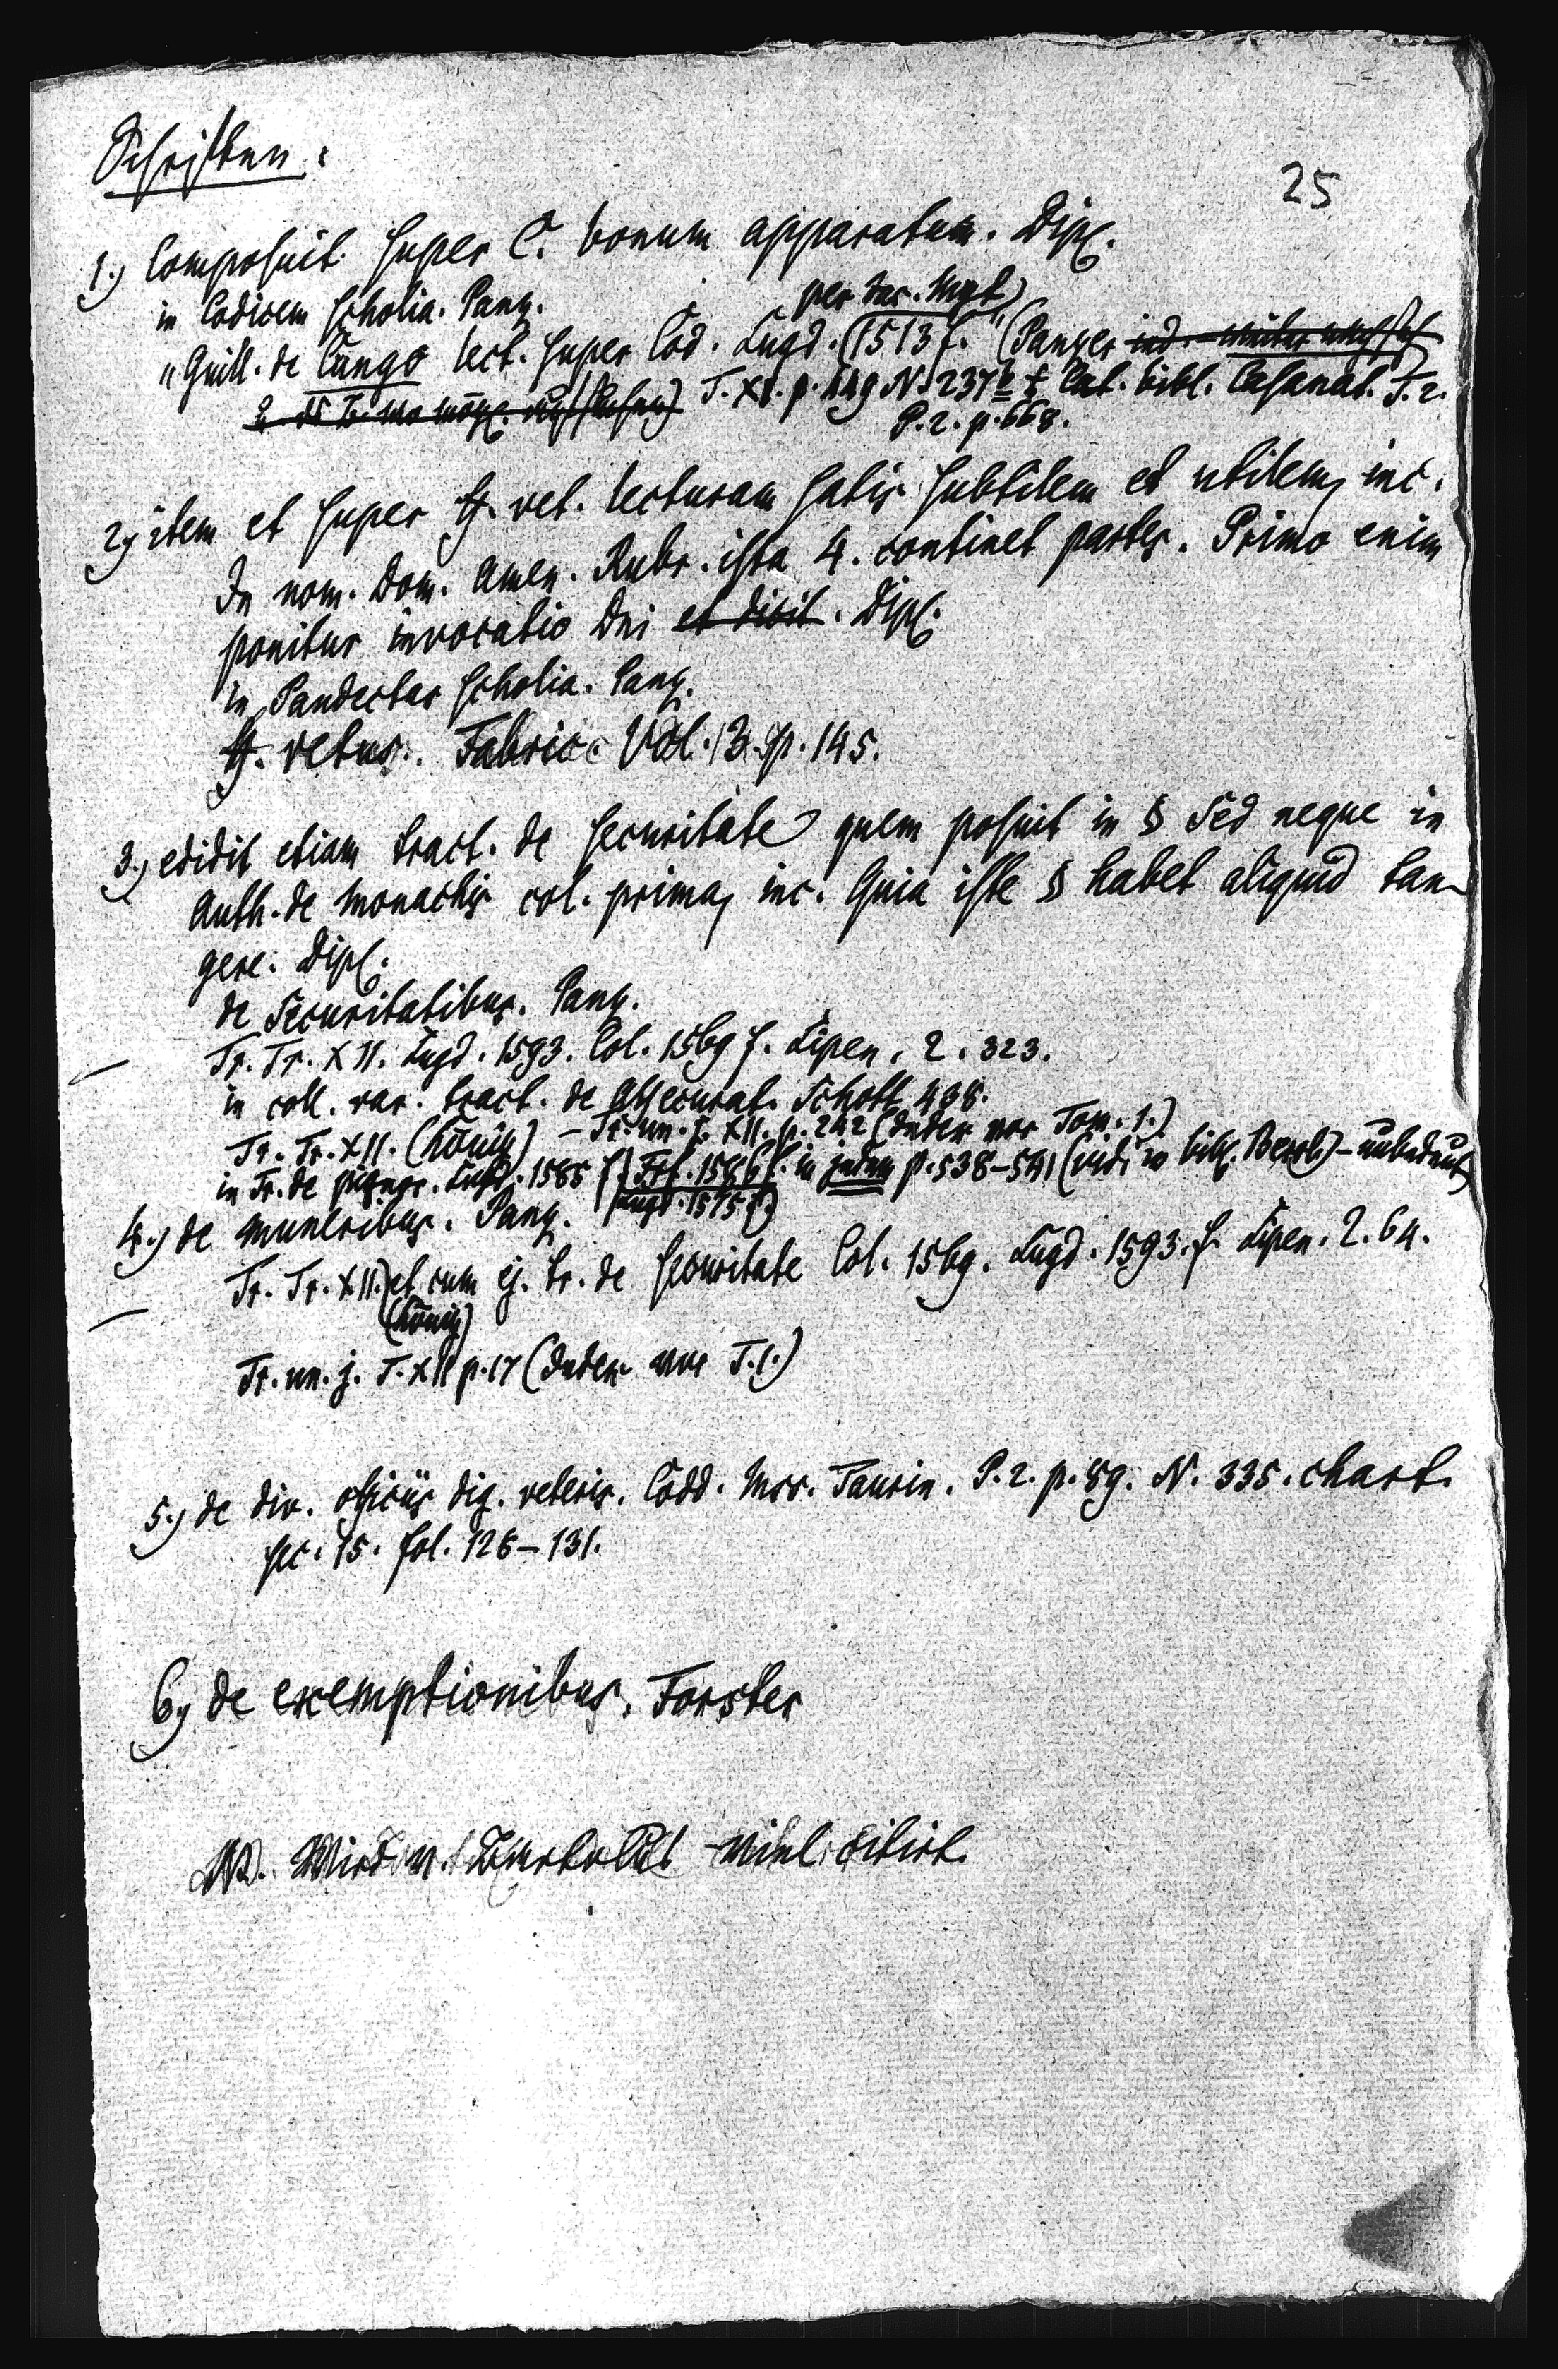 Schriften:
25
1.) Composuit super C. bonum apparatum. Dipl.
in Codicem scholia. Panz.
per Jac. Myt)
"Guill. de Cungo lect. super Cod. Lugd. (1513 f." (Panzer
T. XI. p. 449 N. 237b + Cat. bibl. Casanat. T. 2.
P. 2. p. 668.
2.) item et super ff. vet. lecturam satis subtilem et utilem, inc.
In nom. Dom. Amen. Rubr. ista 4. continet partes. Primo enim
ponitur invocatio Dni et dicit. Dipl.
in Pandectas scholia. Panz.
ff. vetus. Fabric. Vol. 3. p. 145.
3.) edidit etiam tract. de securitate quem posuit in § Sed neque in
Auth. de monachis col. prima, inc. Quia iste § habet aliquid tan-
gere. Dipl.
de Securitatibus. Panz.
Tr. Tr. XII. Lugd. 1593. Col. 1569 f. Lipen. 2. 323.
in coll. var. tract. de assecurat. Schott 498.
Tr. Tr. XII. (König) - Tr. un. j. XII. p. 242 (Index vor Tom. 1.)
in Tr. de pignor. Lugd. 1585 f Frf. 1586 f. in p. 538-541 (vidi in bibl. Berol.) -
Lugd. 1575 f.)
4.) de muneribus. Panz.
Tr. Tr. XII.) et cum ej. tr. de securitate Col. 1569. Lugd. 1593. f. Lipen. 2. 64.
(König)
Tr. un. j. T. XII p. 17 (Index vor T. 1.)
5.) de div. officiis dig. veteris. Codd. Mss. Taurin. P. 2. p. 89. N. 335. chart.
sec. 15. fol. 128-131.
6.) de exemptionibus. Forster
NB. Wird v. citirt.